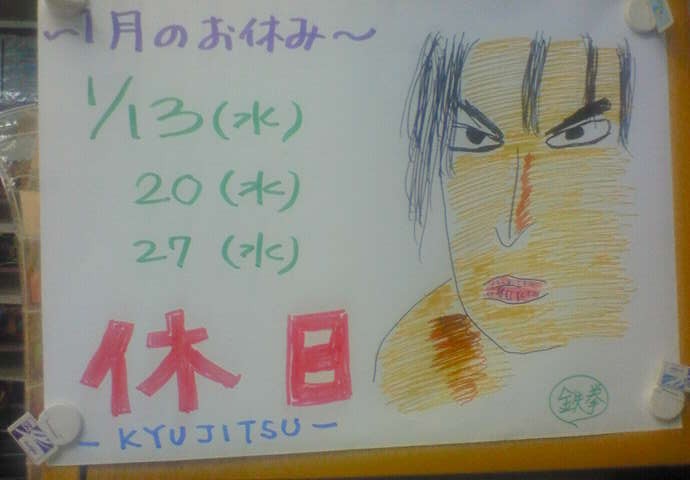 〜1月のお休み〜
1/13(水)
20(水)
27(水)
休日
-KYUJITSU-
鉄拳